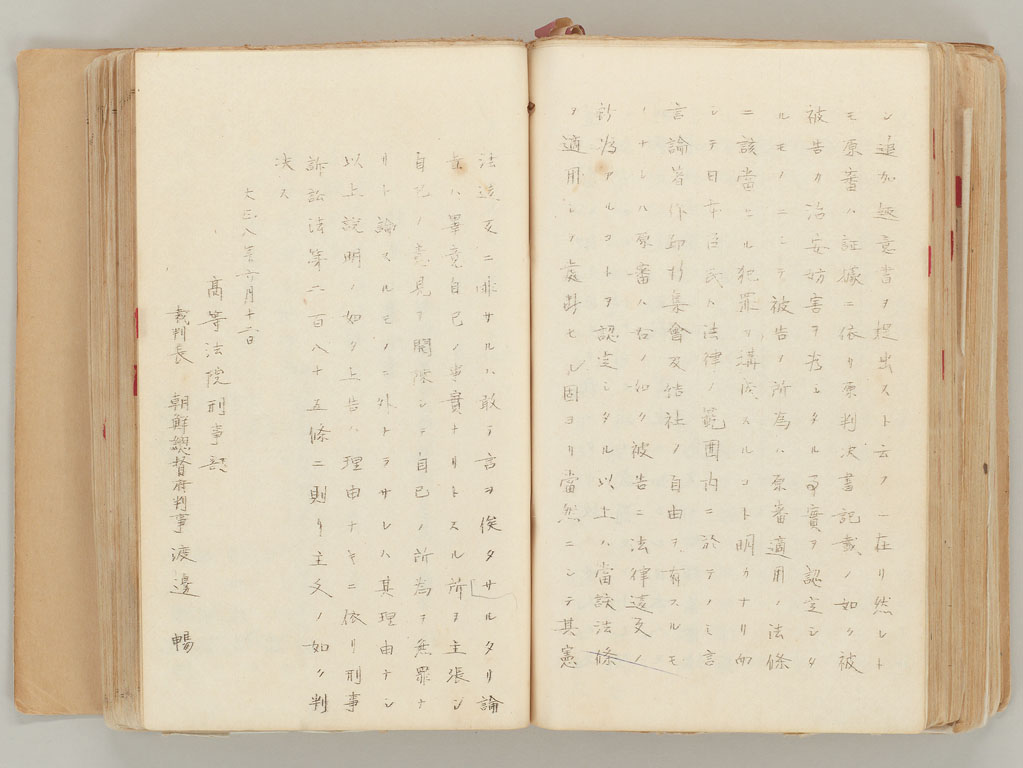 シ追加趣意書ヲ提出スト云フニ在リ然レト
モ原審ハ証據ニ依リ原判决書記載ノ如ク被
被告カ治安妨害ヲ為シタル事實ヲ認定シタ
ルモノニシテ被告ノ所為ハ原審適用ノ法條
ニ該當スル犯罪ヲ構成スルコト明カナリ而
シテ日本臣民ハ法律ノ範圍内ニ於テノミ言
言論著作印行集會及結社ノ自由ヲ有スルモ
ノナレハ原審ハ右ノ如ク被告ニ法律違反ノ
行為アルコトヲ認定シタル以上ハ當該法條
ヲ適用シ處断セル固ヨリ當然ニシテ其憲
法違反ニ非サルハ敢テ言ヲ俟タサルタリ論
旨ハ畢竟自己ノ事實ナリトスル所ヲ主張シ
自己ノ意見ヲ開陳シテ自己ノ所為ヲ無罪ナ
リト論スルモノニ外ナラサレハ其理由ナシ
以上説明ノ如ク上告ハ理由ナキニ依リ刑事
訴訟法第二百八十五條ニ則リ主文ノ如ク判
决ス
大正八年六月十二日
高等法院刑事部
裁判長 朝鮮總督府判事 渡邊 暢